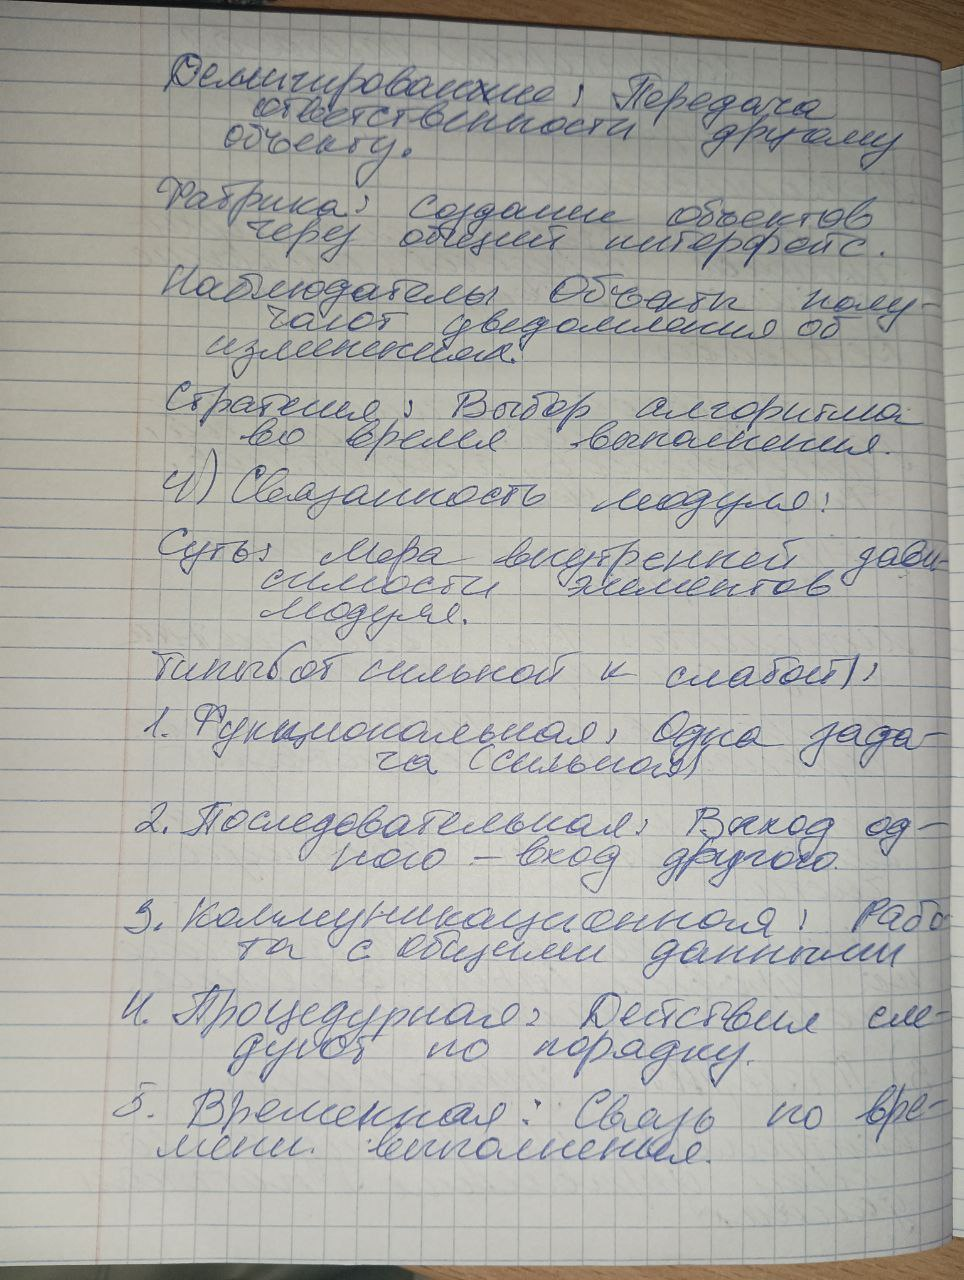 Делигирование: Передача
ответственности другому
объекту.
Фабрика: создание объектов
через общий интерфейс.
Наблюдатель: Объекты полу-
чают уведомления об
изменениях.
Стратегия: Выбор алгоритма
во время выполнения.
4) Связанность модуля:
Суть: Мера внутренней зави-
симости элементов
модуля.
Типы (от сильной к слабой):
1. Функциональная: Одна зада-
ча (сильная)
2. Последовательная: Выход од-
ного – вход другого.
3. Коммуникационная: Рабо
та с общими данными
4. Процедурная: Действия сле-
дуют по порядку.
5. Временная: Связь по вре-
мени выполнения.